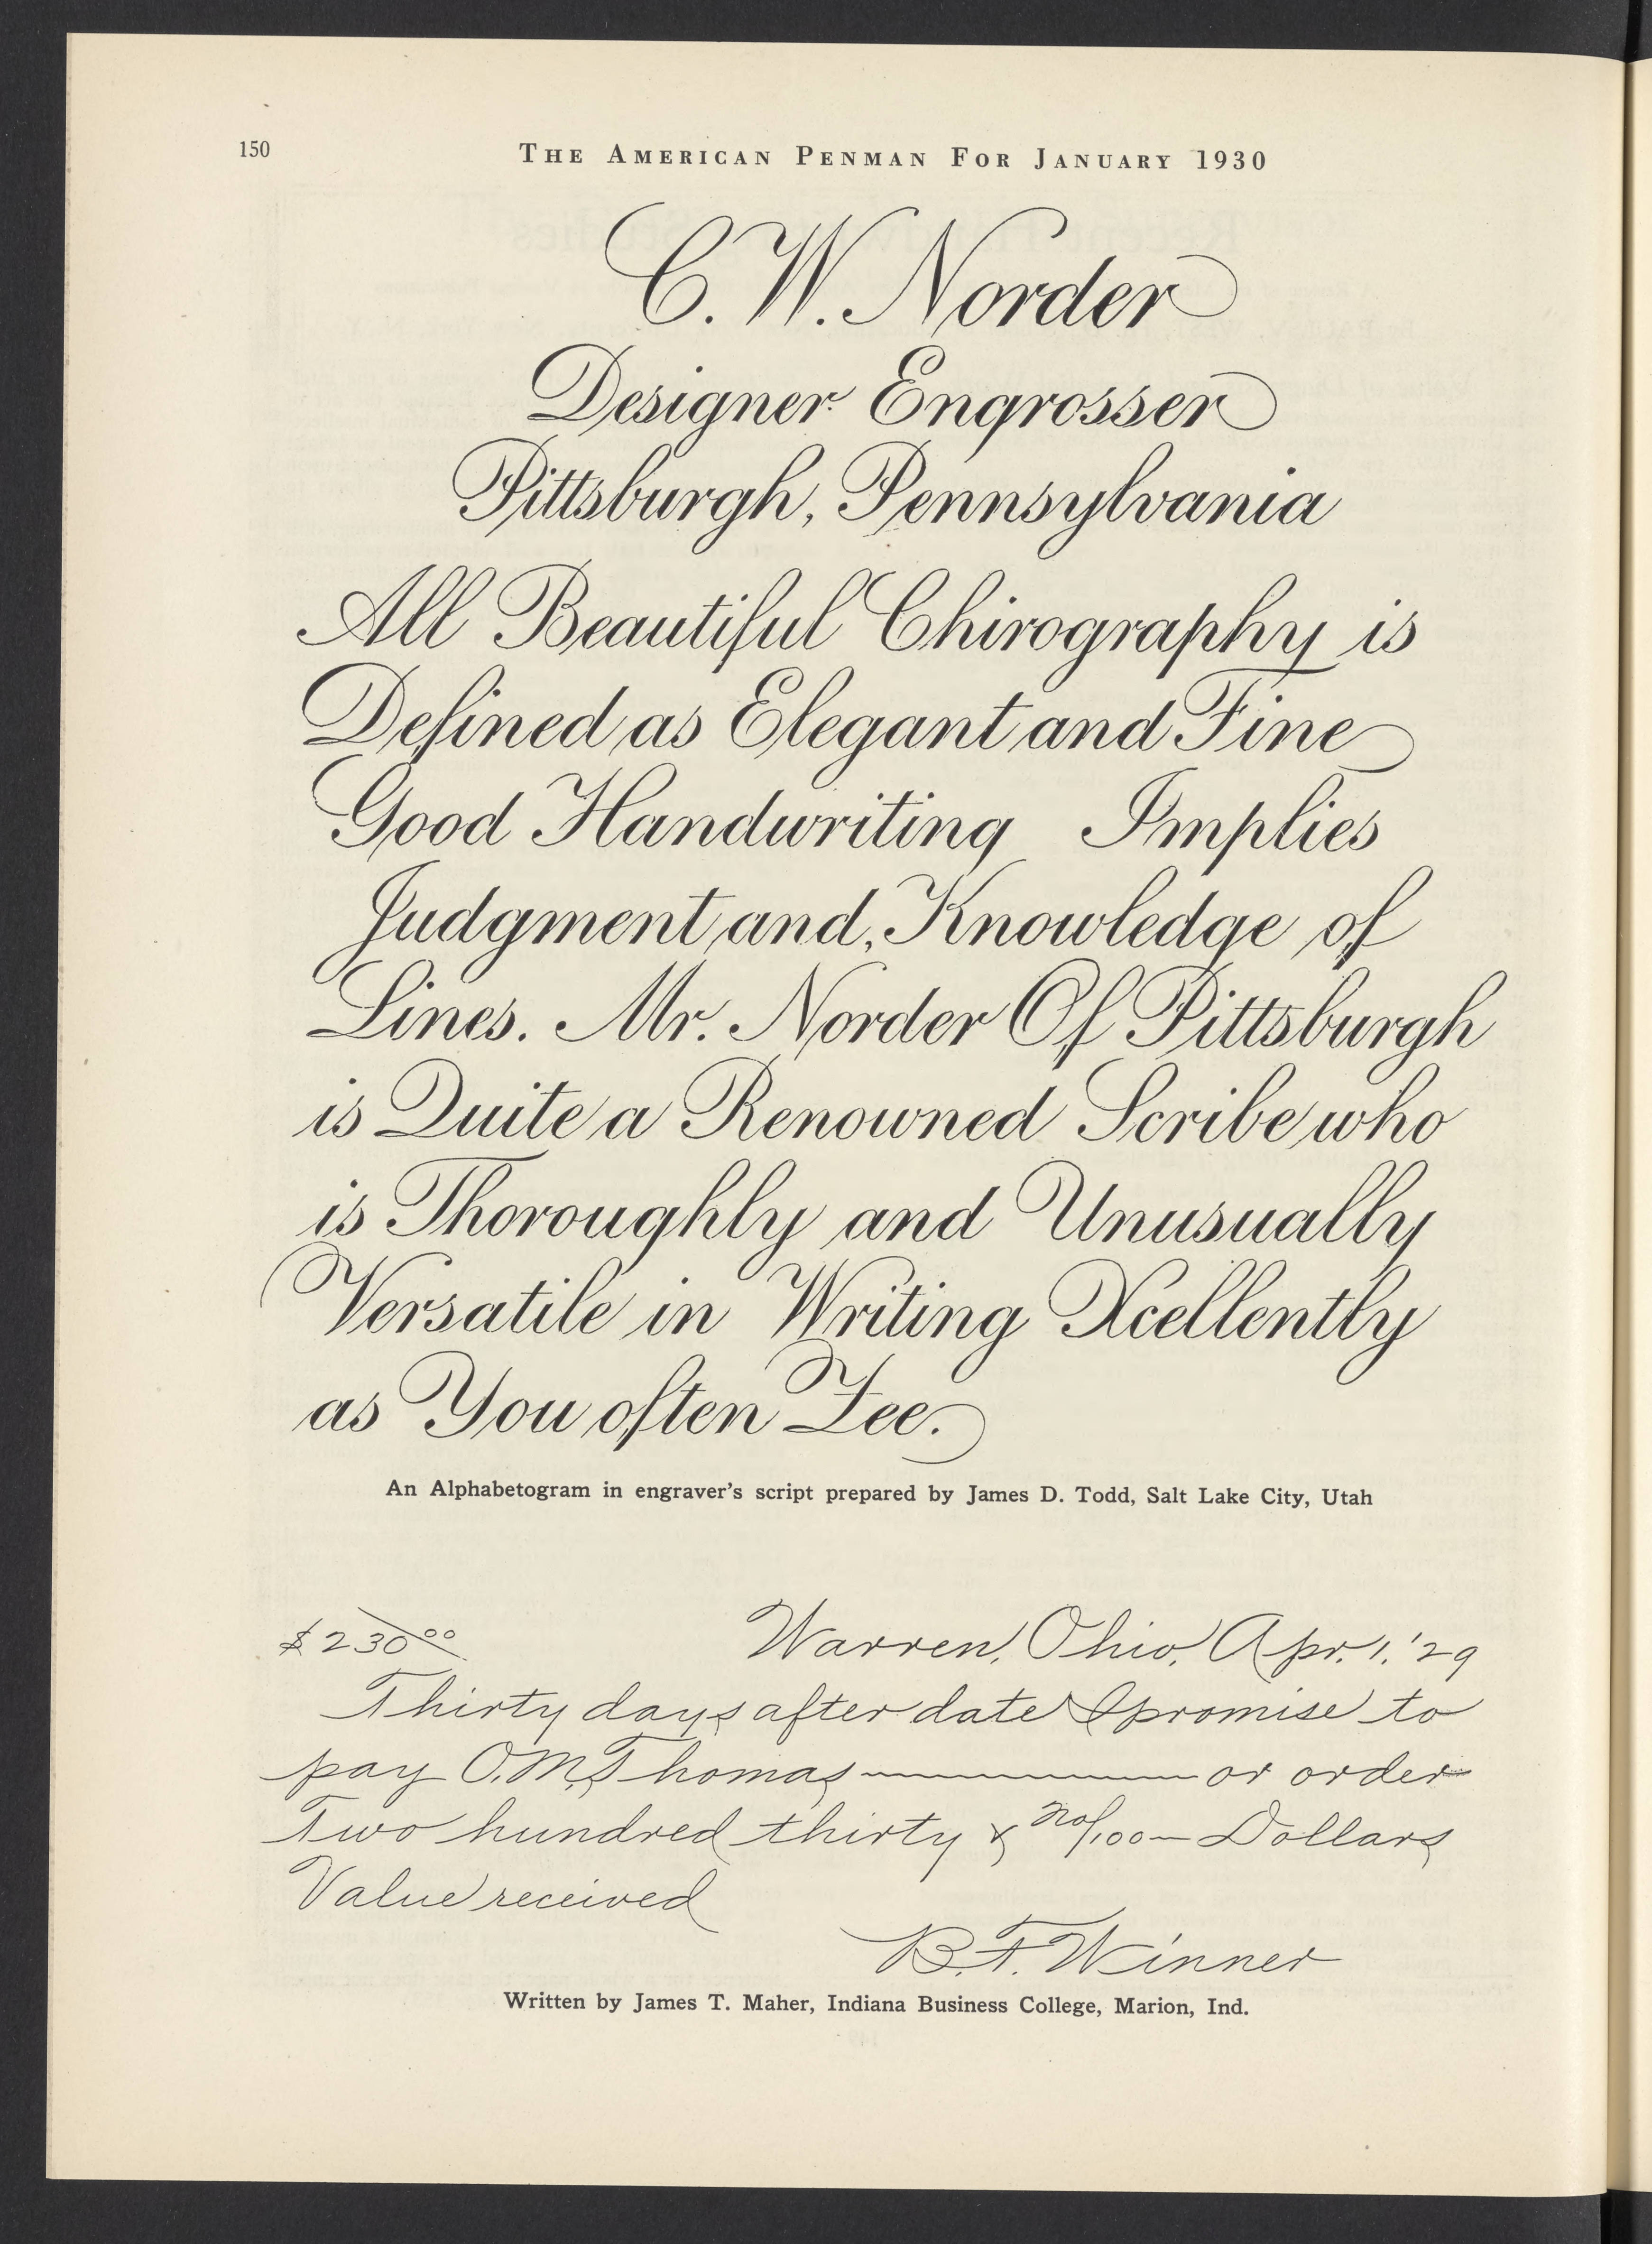 150
THE AMERICAN PENMAN FOR JANUARY 1930
C. W. Norder
Designer Engrosser
Pittsburgh, Pennsylvania
All Beautiful Chirography is
Defined as Elegant and Fine
Good Handwriting Implies
Judgment and, Knowledge of
Lines. Mr. Norder Of Pittsburgh
is Quite a Renowned Scribe who
is Thoroughly and Unusually
Versatile in Writing Xcellently
as You often Zee.
An Alphabetogram in engraver's script prepared by James D. Todd, Salt Lake City, Utah
$230 00 Warren, Ohio, Apr. 1, '29
Thirty days after date I promise to
pay O. M. Thomas or order
Two hundred thirty & no/100 — Dollars
Value received
B. F. Winner
Written by James T. Maher, Indiana Business College, Marion, Ind.